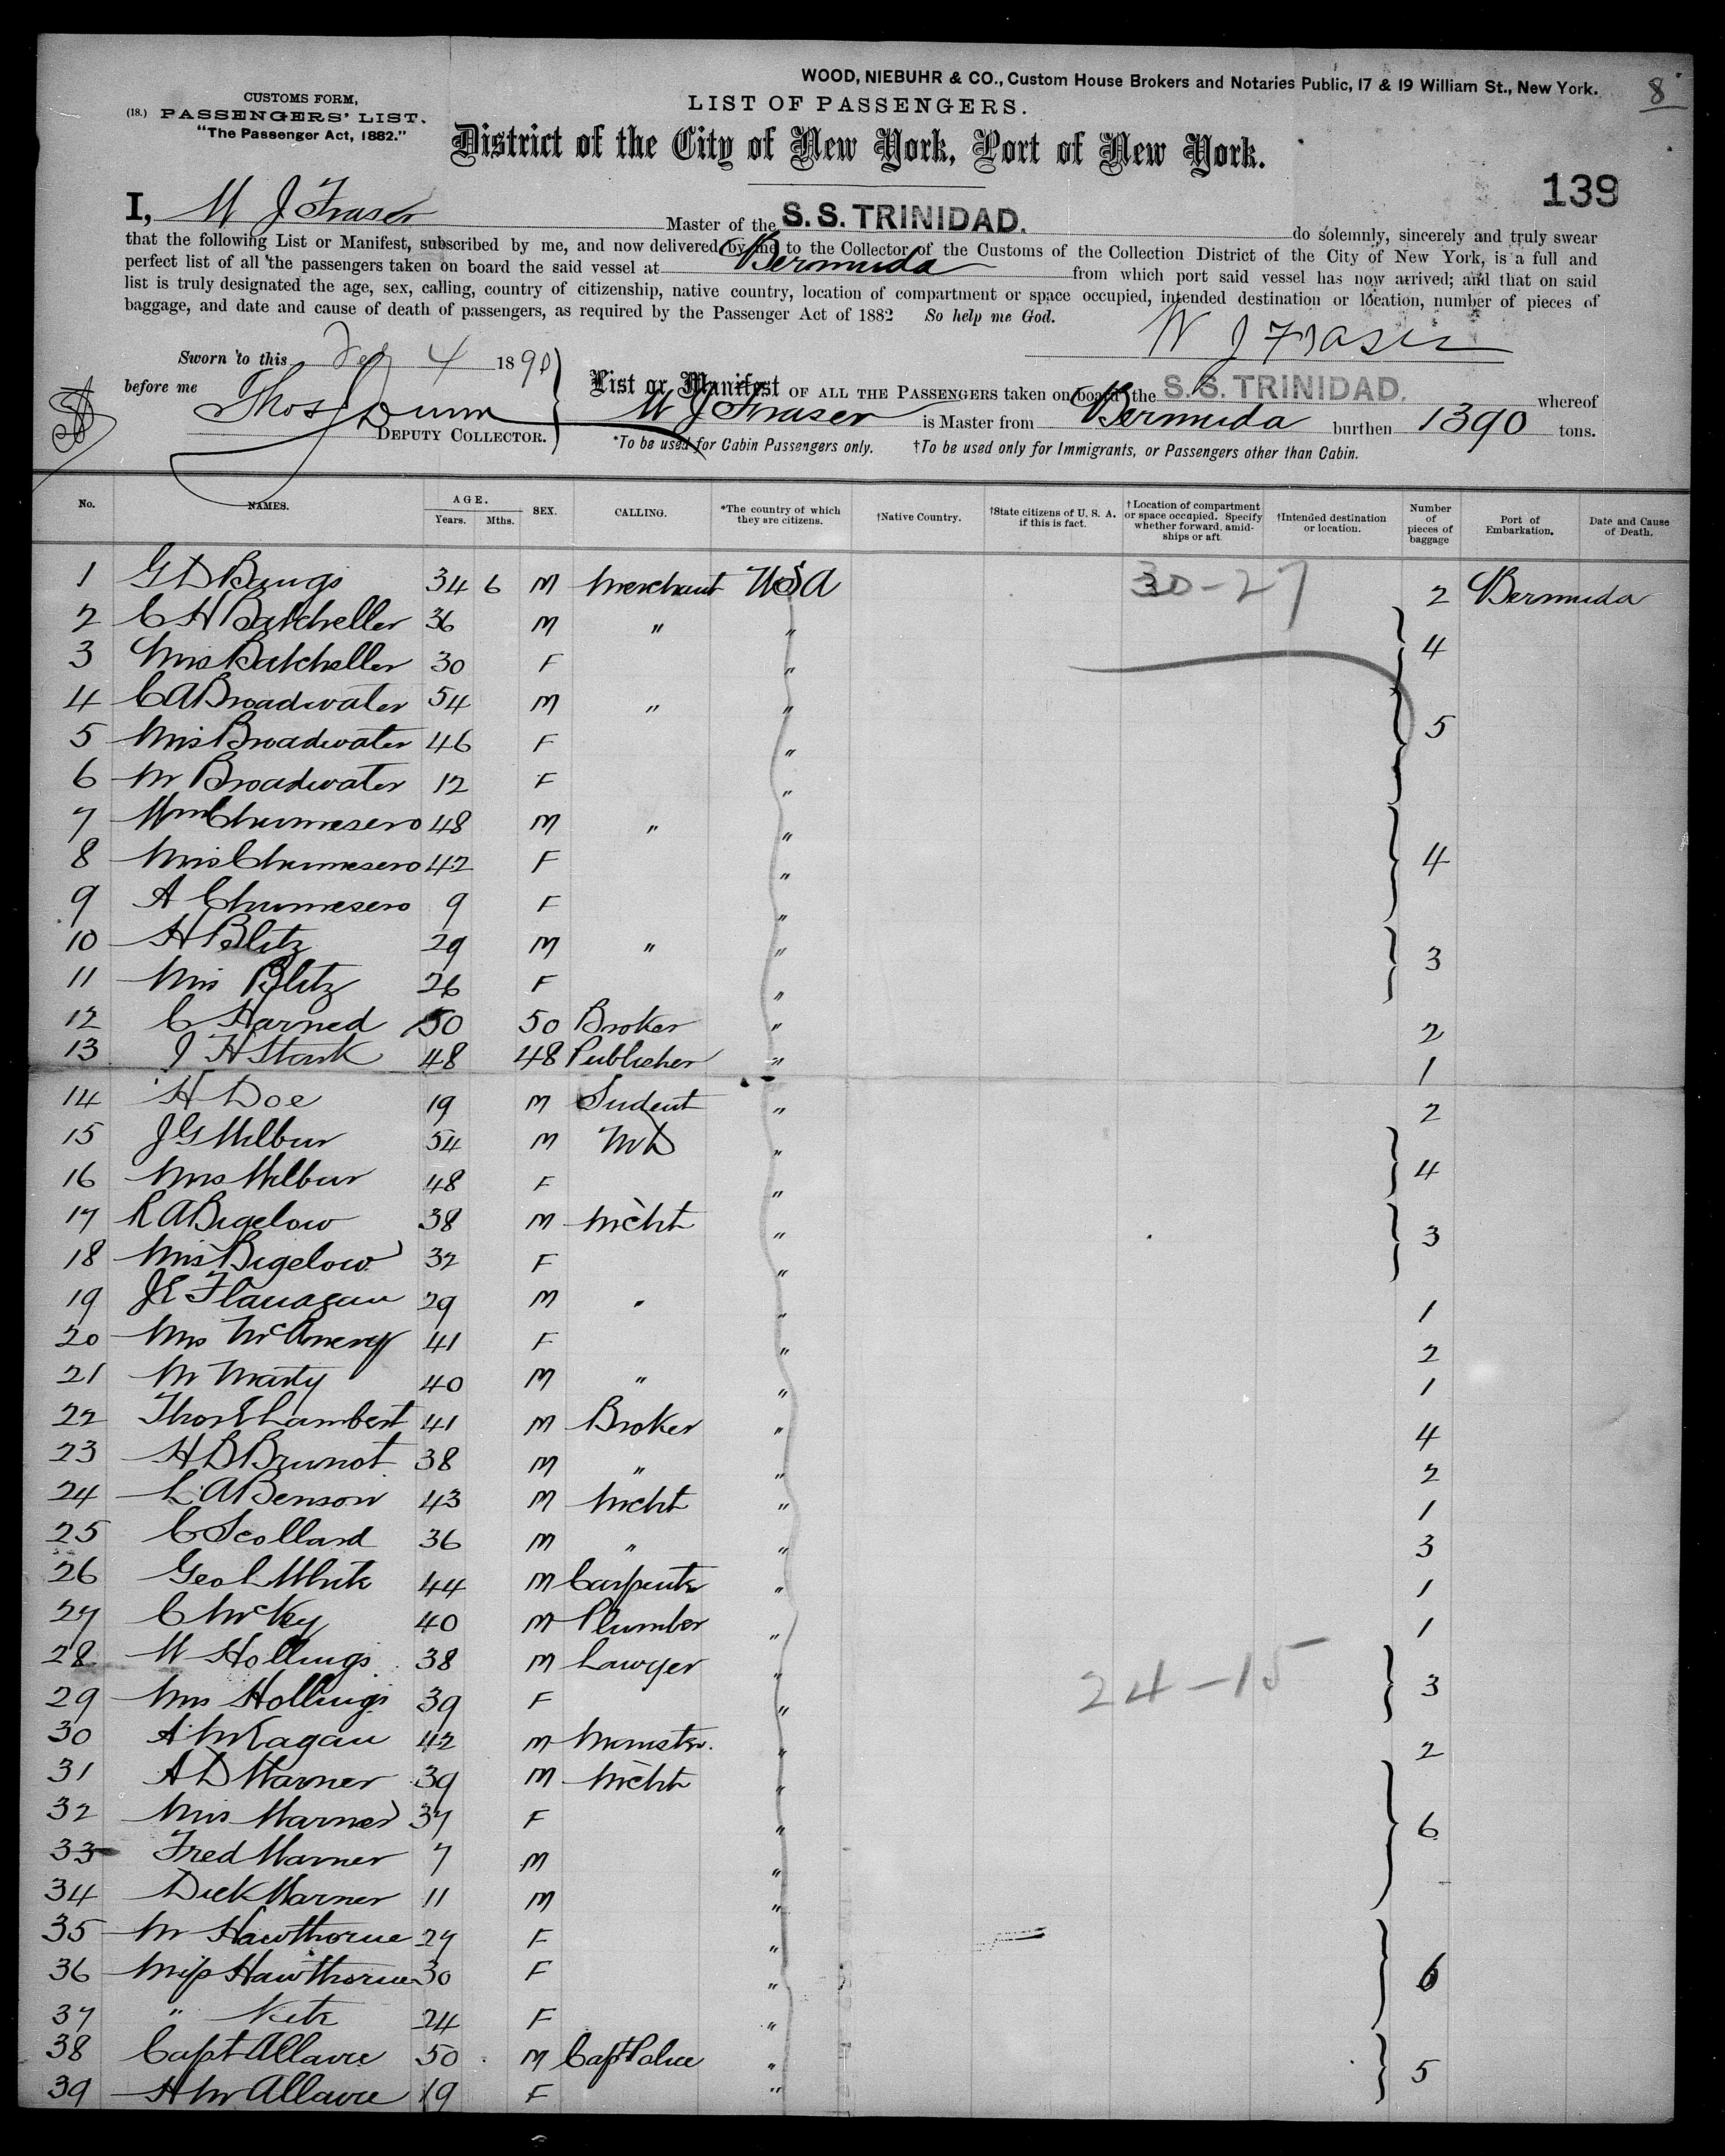 WOOD, NIEBUHR & CO., Custom House Brokers and Notaries Public, 17 & 19 William St., New York.
8
CUSTOMS FORM,
(18.) PASSENGERS' LIST.
"The Passenger Act, 1882."
LIST OF PASSENGERS.
District of the City of New York, Port of New York.
139
I, W J Fraser Master of the S. S. TRINIDAD. do solemnly, sincerely and truly swear
that the following List or Manifest, subscribed by me, and now delivered by me to the Collector of the Customs of the Collection District of the City of New York, is a full and
perfect list of all the passengers taken on board the said vessel at Bermuda from which port said vessel has now arrived; and that on said
list is truly designated the age, sex, calling, country of citizenship, native country, location of compartment or space occupied, intended destination or location, number of pieces of
baggage, and date and cause of death of passengers, as required by the Passenger Act of 1882 So help me God.
W J Fraser
Sworn to this Feb 4 1890
before me Thos Dunn
DEPUTY COLLECTOR.
List or Manifest OF ALL THE PASSENGERS taken on board the S. S. TRINIDAD. whereof
W J Fraser is Master from Bermuda burthen 1390 tons.
*To be used for Cabin Passengers only. †To be used only for Immigrants, or Passengers other than Cabin.
No. NAMES. AGE. Years. Mths. SEX. CALLING. *The country of which they are citizens. †Native Country. †State citizens of U. S. A. if this is fact. †Location of compartment or space occupied. Specify whether forward, amidships or aft. †Intended destination or location. Number of pieces of baggage Port of Embarkation. Date and Cause of Death.
1 G D Bangs 34 6 M Merchant USA 30-27 2 Bermuda
2 C H Batcheller 36 M " "
3 Mrs Batcheller 30 F " 4
4 C A Broadwater 54 M " "
5 Mrs Broadwater 46 F " 5
6 M Broadwater 12 F "
7 Wm Chumesero 48 M " "
8 Mrs Chumesero 42 F " 4
9 A Chumesero 9 F "
10 H Blitz 29 M " "
11 Mrs Blitz 26 F " 3
12 C Harned 50 50 Broker " 2
13 J H Stark 48 48 Publisher " 1
14 H Doe 19 M Sudent " 2
15 J G Wilbur 54 M MD "
16 Mrs Wilbur 48 F " 4
17 R A Bigelow 38 M Mcht "
18 Mrs Bigelow 32 F " 3
19 J E Flanagan 29 M " " 1
20 Mrs McAnery 41 F " 2
21 M Marty 40 M " " 1
22 Thos E Lambert 41 M Broker " 4
23 H B Brunot 38 M " " 2
24 L A Benson 43 M Mcht " 1
25 C Scollard 36 M " " 3
26 Geo L White 44 M Carpenter " 1
27 C McKey 40 M Plumber " 1
28 W Hollings 38 M Lawyer " 24-15
29 Mrs Hollings 39 F " 3
30 A M Kagan 42 M Minister. " 2
31 A D Warner 39 M Mcht "
32 Mrs Warner 37 F " 6
33 Fred Warner 7 M "
34 Dick Warner 11 M "
35 M Hawthorne 27 F "
36 Miss Hawthorne 30 F " 6
37 " 24 F "
38 Capt Allaire 50 M Capt Police "
39 H M Allaire 19 F " 5